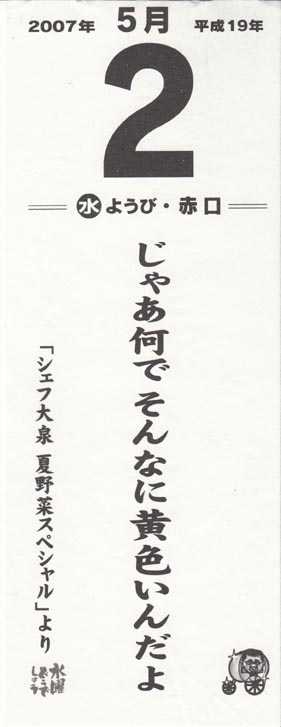 2007年 5月 平成19年
2
㊌ようび・赤口
じゃあ何で そんなに黄色いんだよ
「シェフ大泉 夏野菜スペシャル」より
水曜
どうで
しょう